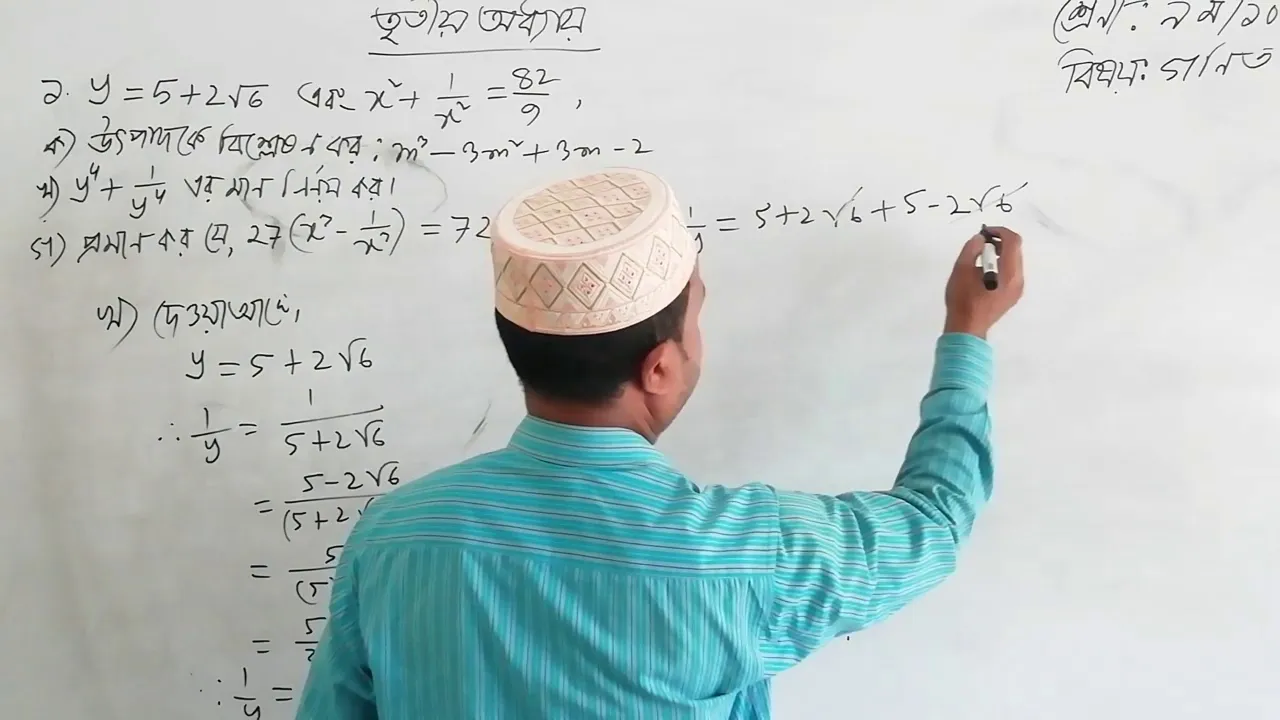 তৃতীয় অধ্যায়
শ্রেণী: ৯ম/১০
বিষয়: গণিত
১. y = 5 + 2√6 এবং x² + 1/x² = 82/9,
ক) উৎপাদকে বিশ্লেষণ কর: m³ − 3m² + 3m − 2
খ) y⁴ + 1/y⁴ এর মান নির্ণয় কর।
গ) প্রমাণ কর যে, 27(x³ − 1/x³) = 72
খ) দেওয়া আছে,
y = 5 + 2√6
∴ 1/y = 1/(5 + 2√6)
= 5 − 2√6 / (5 + 2
= 5 / (5
= 5
∴ 1/y =
1/y = 5 + 2√6 + 5 − 2√6